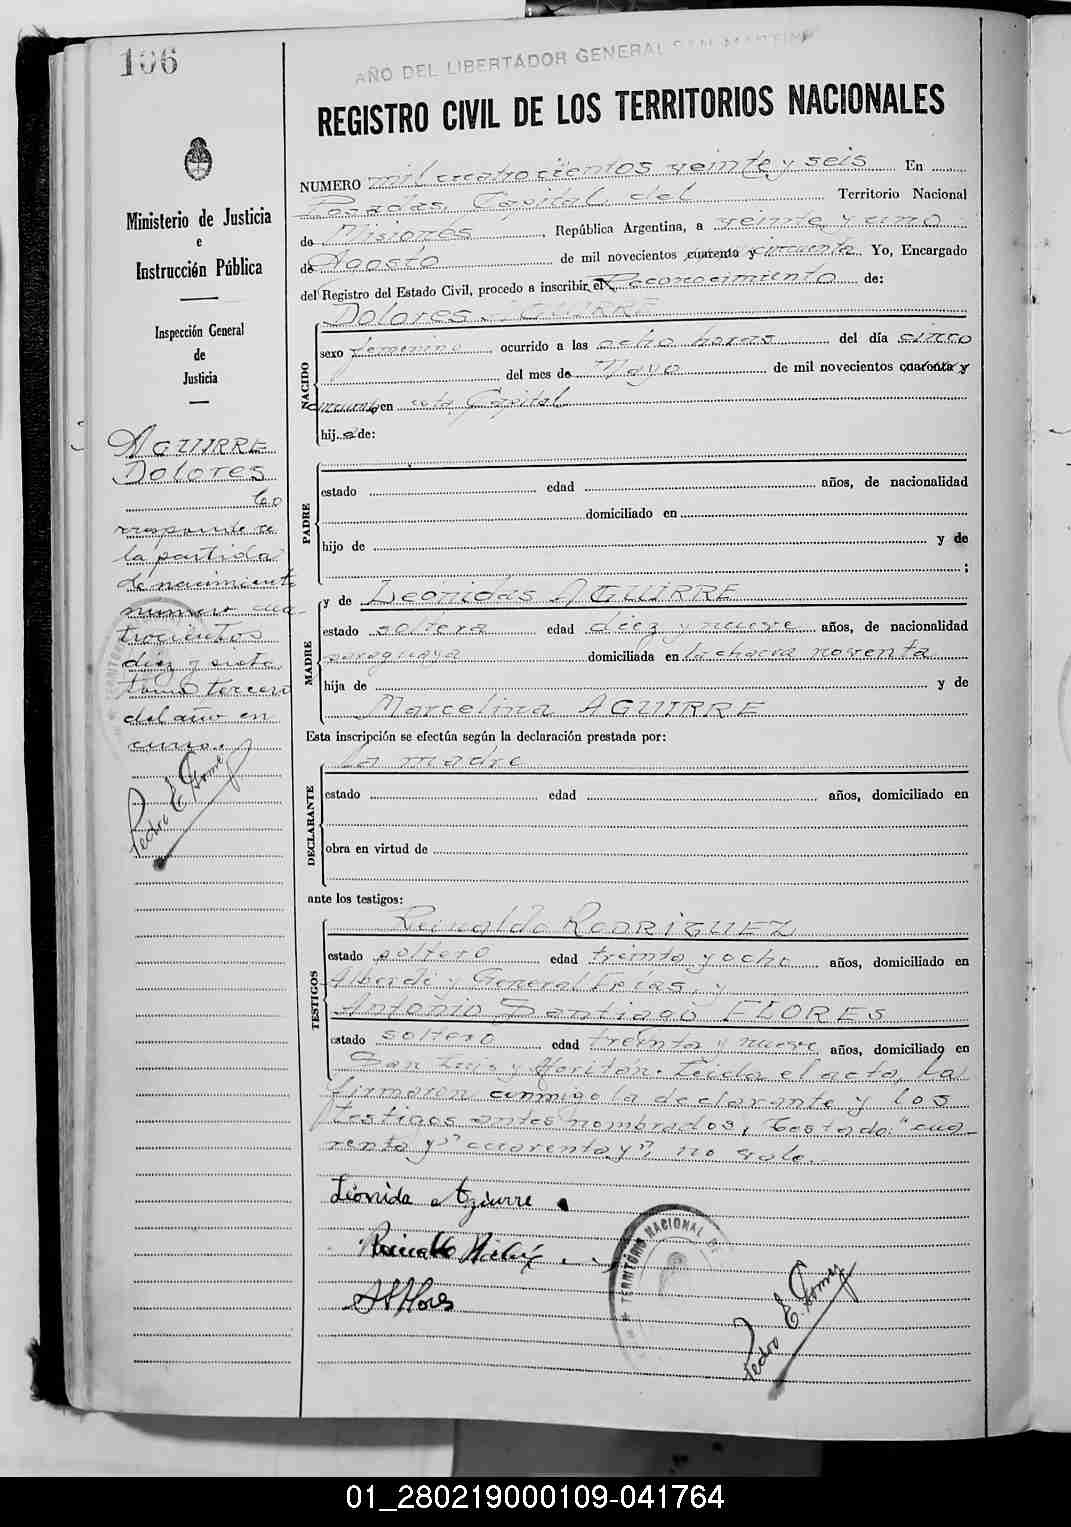 106
AÑO DEL LIBERTADOR GENERAL SAN MARTIN
REGISTRO CIVIL DE LOS TERRITORIOS NACIONALES
Ministerio de Justicia
e
Instrucción Pública
Inspección General
de
Justicia
AGUIRRE
Dolores
Co
rresponde a
la partida
de nacimiento
numero cua-
trocientos
diez y siete
tomo tercero
del año en
curso.
Pedro E. Gomez
NUMERO mil cuatrocientos veinte y seis En
Posadas, Capital del Territorio Nacional
de Misiones, República Argentina, a veinte y uno
de Agosto de mil novecientos cuarenta y cincuenta Yo, Encargado
del Registro del Estado Civil, procedo a inscribir el Reconocimiento de:
Dolores AGUIRRE
NACIDO
sexo femenino, ocurrido a las ocho horas del día cinco
del mes de Mayo de mil novecientos cuarenta y
cincuenta en esta Capital
hija de:
PADRE
estado edad años, de nacionalidad
domiciliado en
hijo de y de
;
MADRE
y de Leónidas AGUIRRE
estado soltera edad diez y nueve años, de nacionalidad
paraguaya domiciliada en la chacra noventa
hija de y de
Marcelina AGUIRRE
Esta inscripción se efectúa según la declaración prestada por:
la madre
DECLARANTE
estado edad años, domiciliado en
obra en virtud de
ante los testigos:
TESTIGOS
Reinaldo RODRIGUEZ
estado soltero edad treinta y ocho años, domiciliado en
Alberdi y General Frías, y
Antonio Santiago FLORES
estado soltero edad treinta y nueve años, domiciliado en
San Luis y Moritán. Leida el acta, la
firmaron conmigo la declarante y los
testigos antes nombrados, Testado: "cua-
renta y" "cuarenta y", no vale.
Liónida Aguirre
ASFlores
TERRITORIO NACIONAL DE
Pedro E. Gomez
01_280219000109-041764